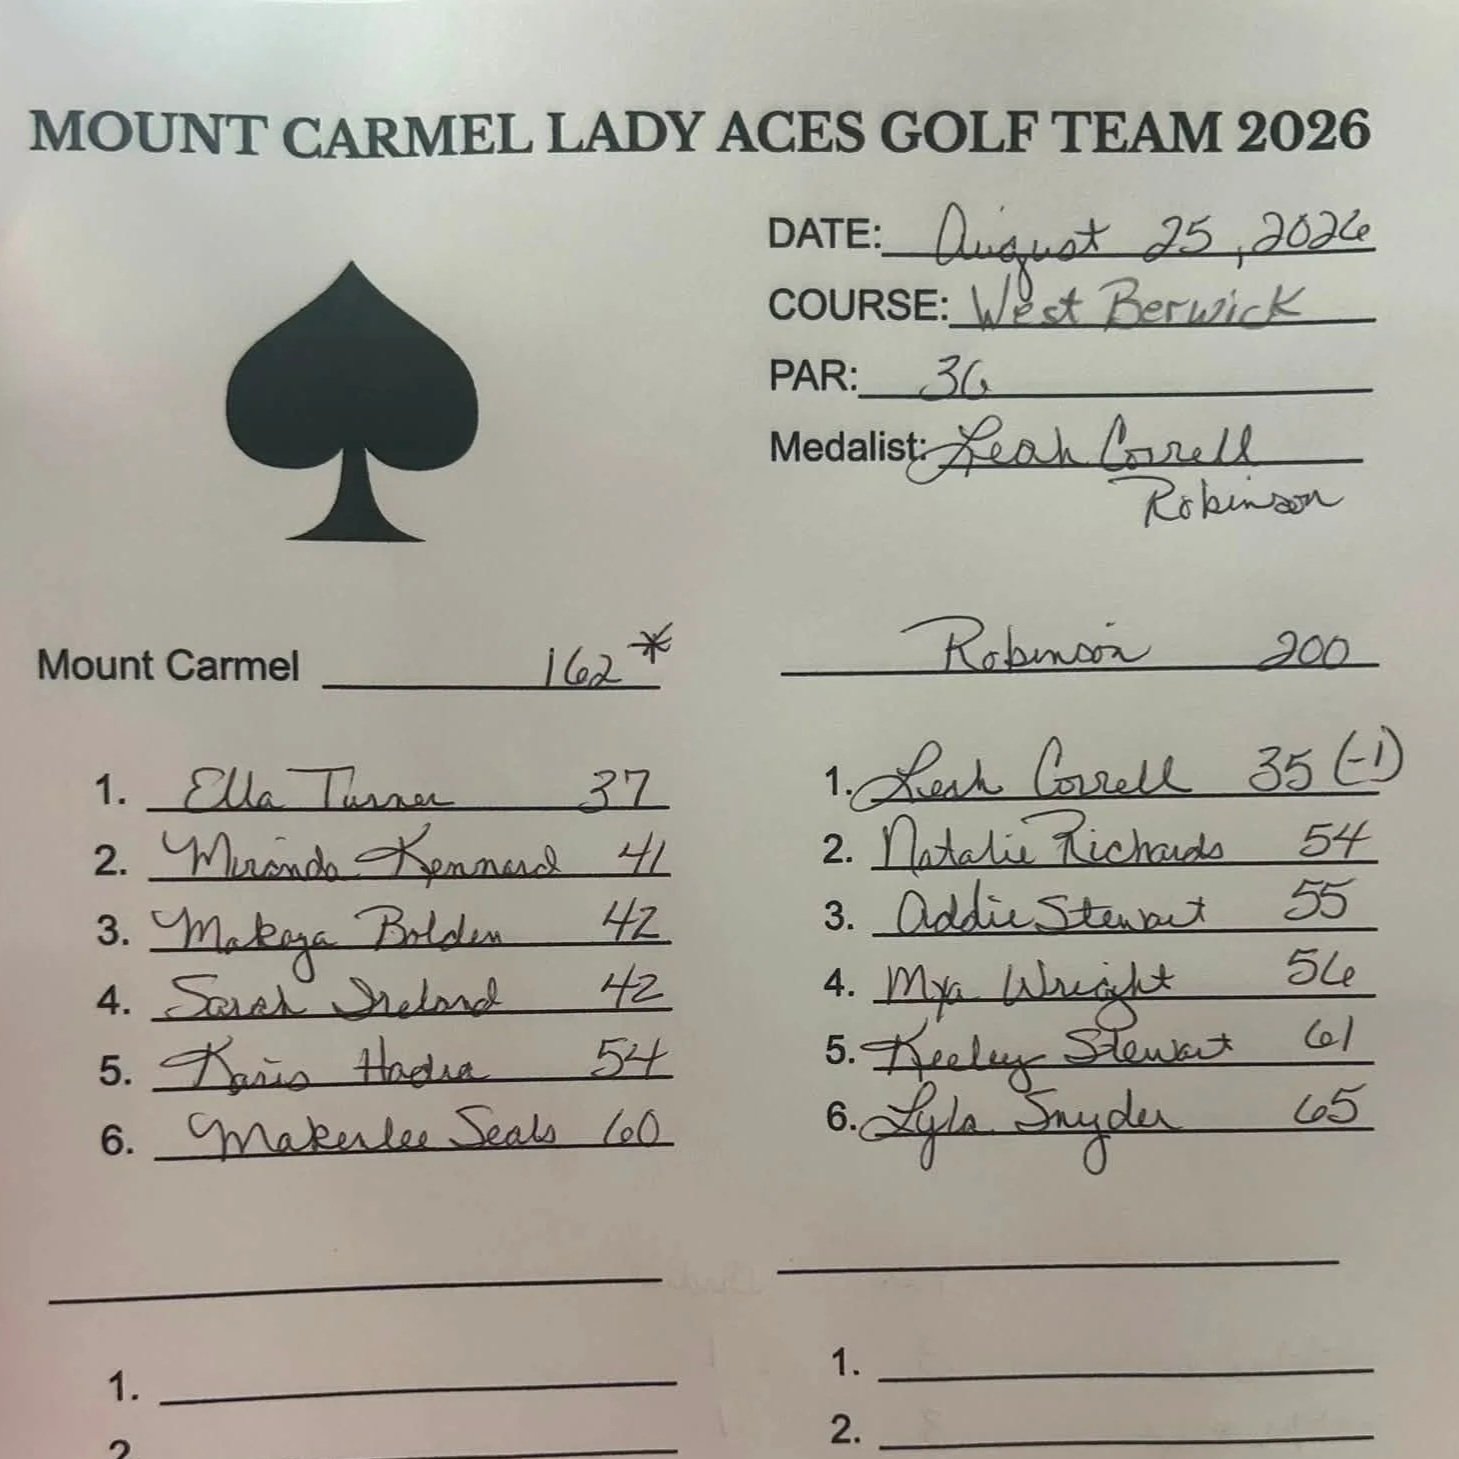 MOUNT CARMEL LADY ACES GOLF TEAM 2026
DATE: August 25, 2026
COURSE: West Berwick
PAR: 36
Medalist: Leah Correll
Robinson
Mount Carmel 162*
1. Ella Turner 37
2. Miranda Kennard 41
3. Makaya Bolden 42
4. Sarah Ireland 42
5. Karis Hadra 54
6. Makenlee Seals 60
Robinson 200
1. Leah Correll 35 (-1)
2. Natalie Richards 54
3. Addie Stewart 55
4. Mya Wright 56
5. Keeley Stewart 61
6. Lyla Snyder 65
1.
2
1.
2.